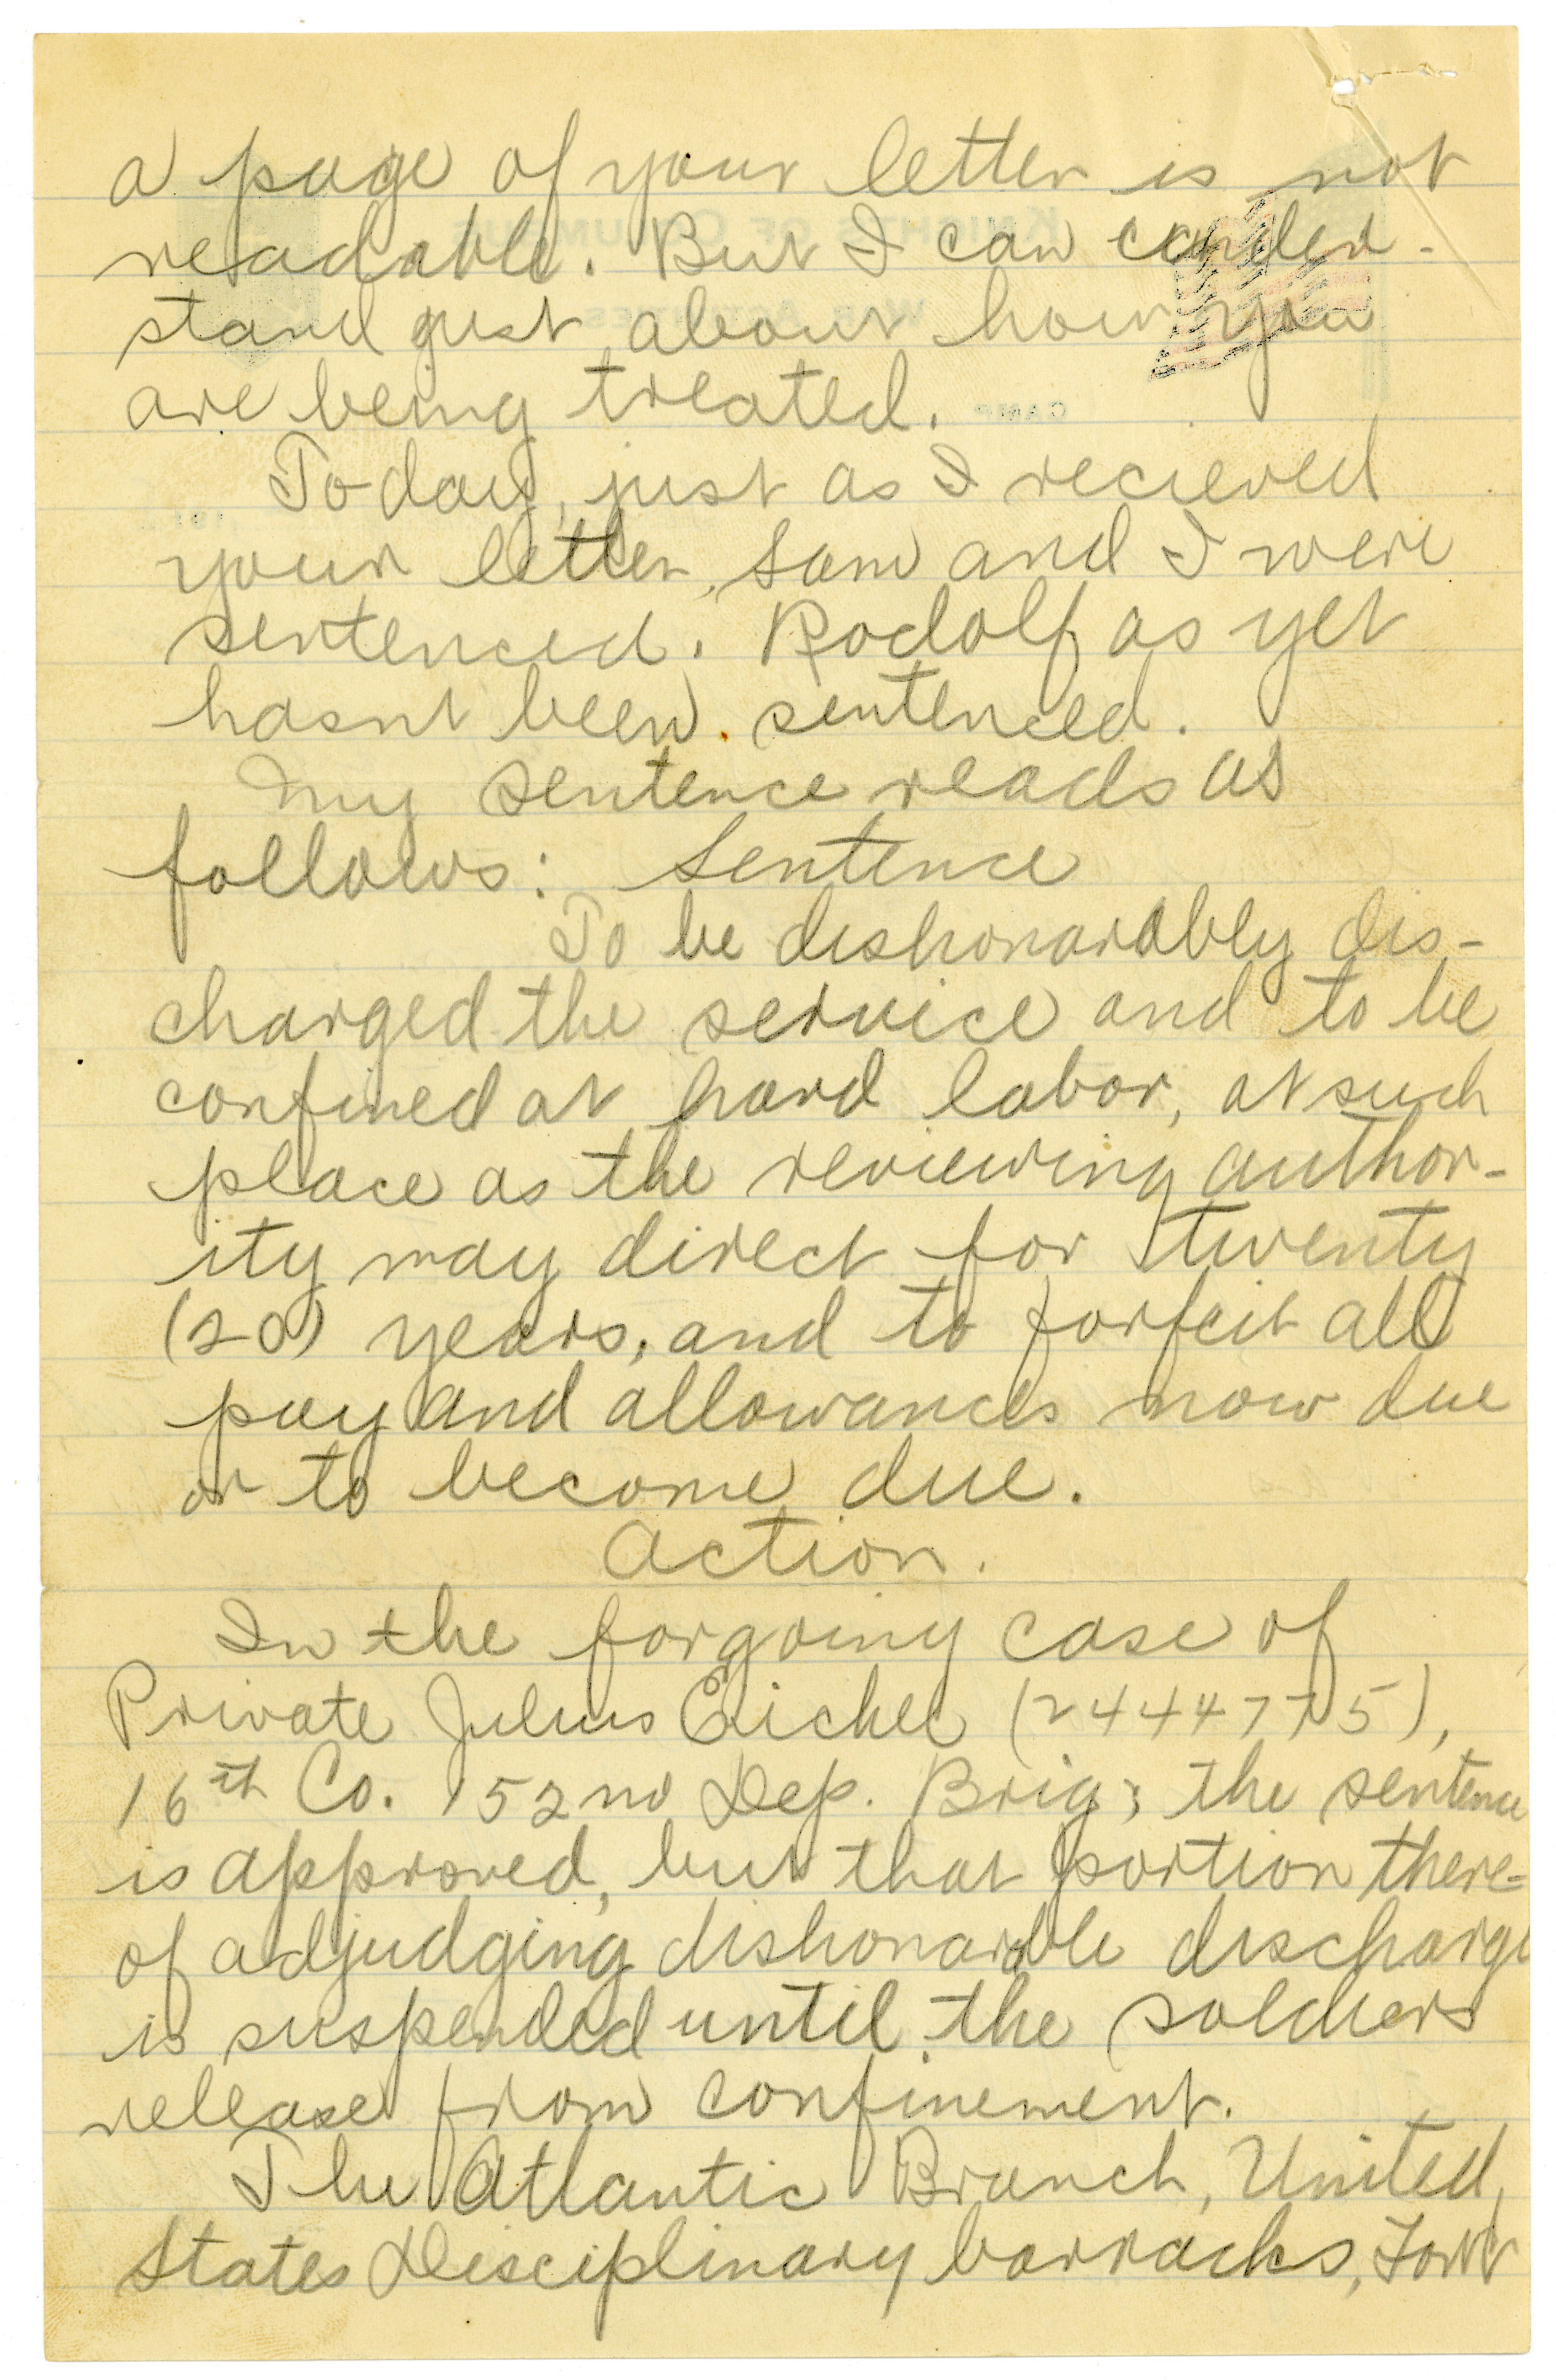 a page of your letter is not
readable. But I can under-
stand just about how you
are being treated.
Today, just as I recieved
your letter, Sam and I were
sentenced. Rodolf as yet
hasnt been sentenced.
My sentence reads as
follows: Sentence
To be dishonarably dis-
charged the service and to be
confined at hard labor, at such
place as the reviewing author-
ity may direct for twenty
(20) years, and to forfeit all
pay and allowances now due
or to become due.
Action.
In the forgoing case of
Private Julius Eichel (2444775),
16th Co. 152nd Dep. Brig; the sentence
is approved, but that portion there-
of adjudging dishonarable discharge
is suspended until the soldiers
release from confinement.
The Atlantic Branch, United,
States Disciplinary barracks, Fort
KNIGHTS OF COLUMBUS
WAR ACTIVITIES
CAMP